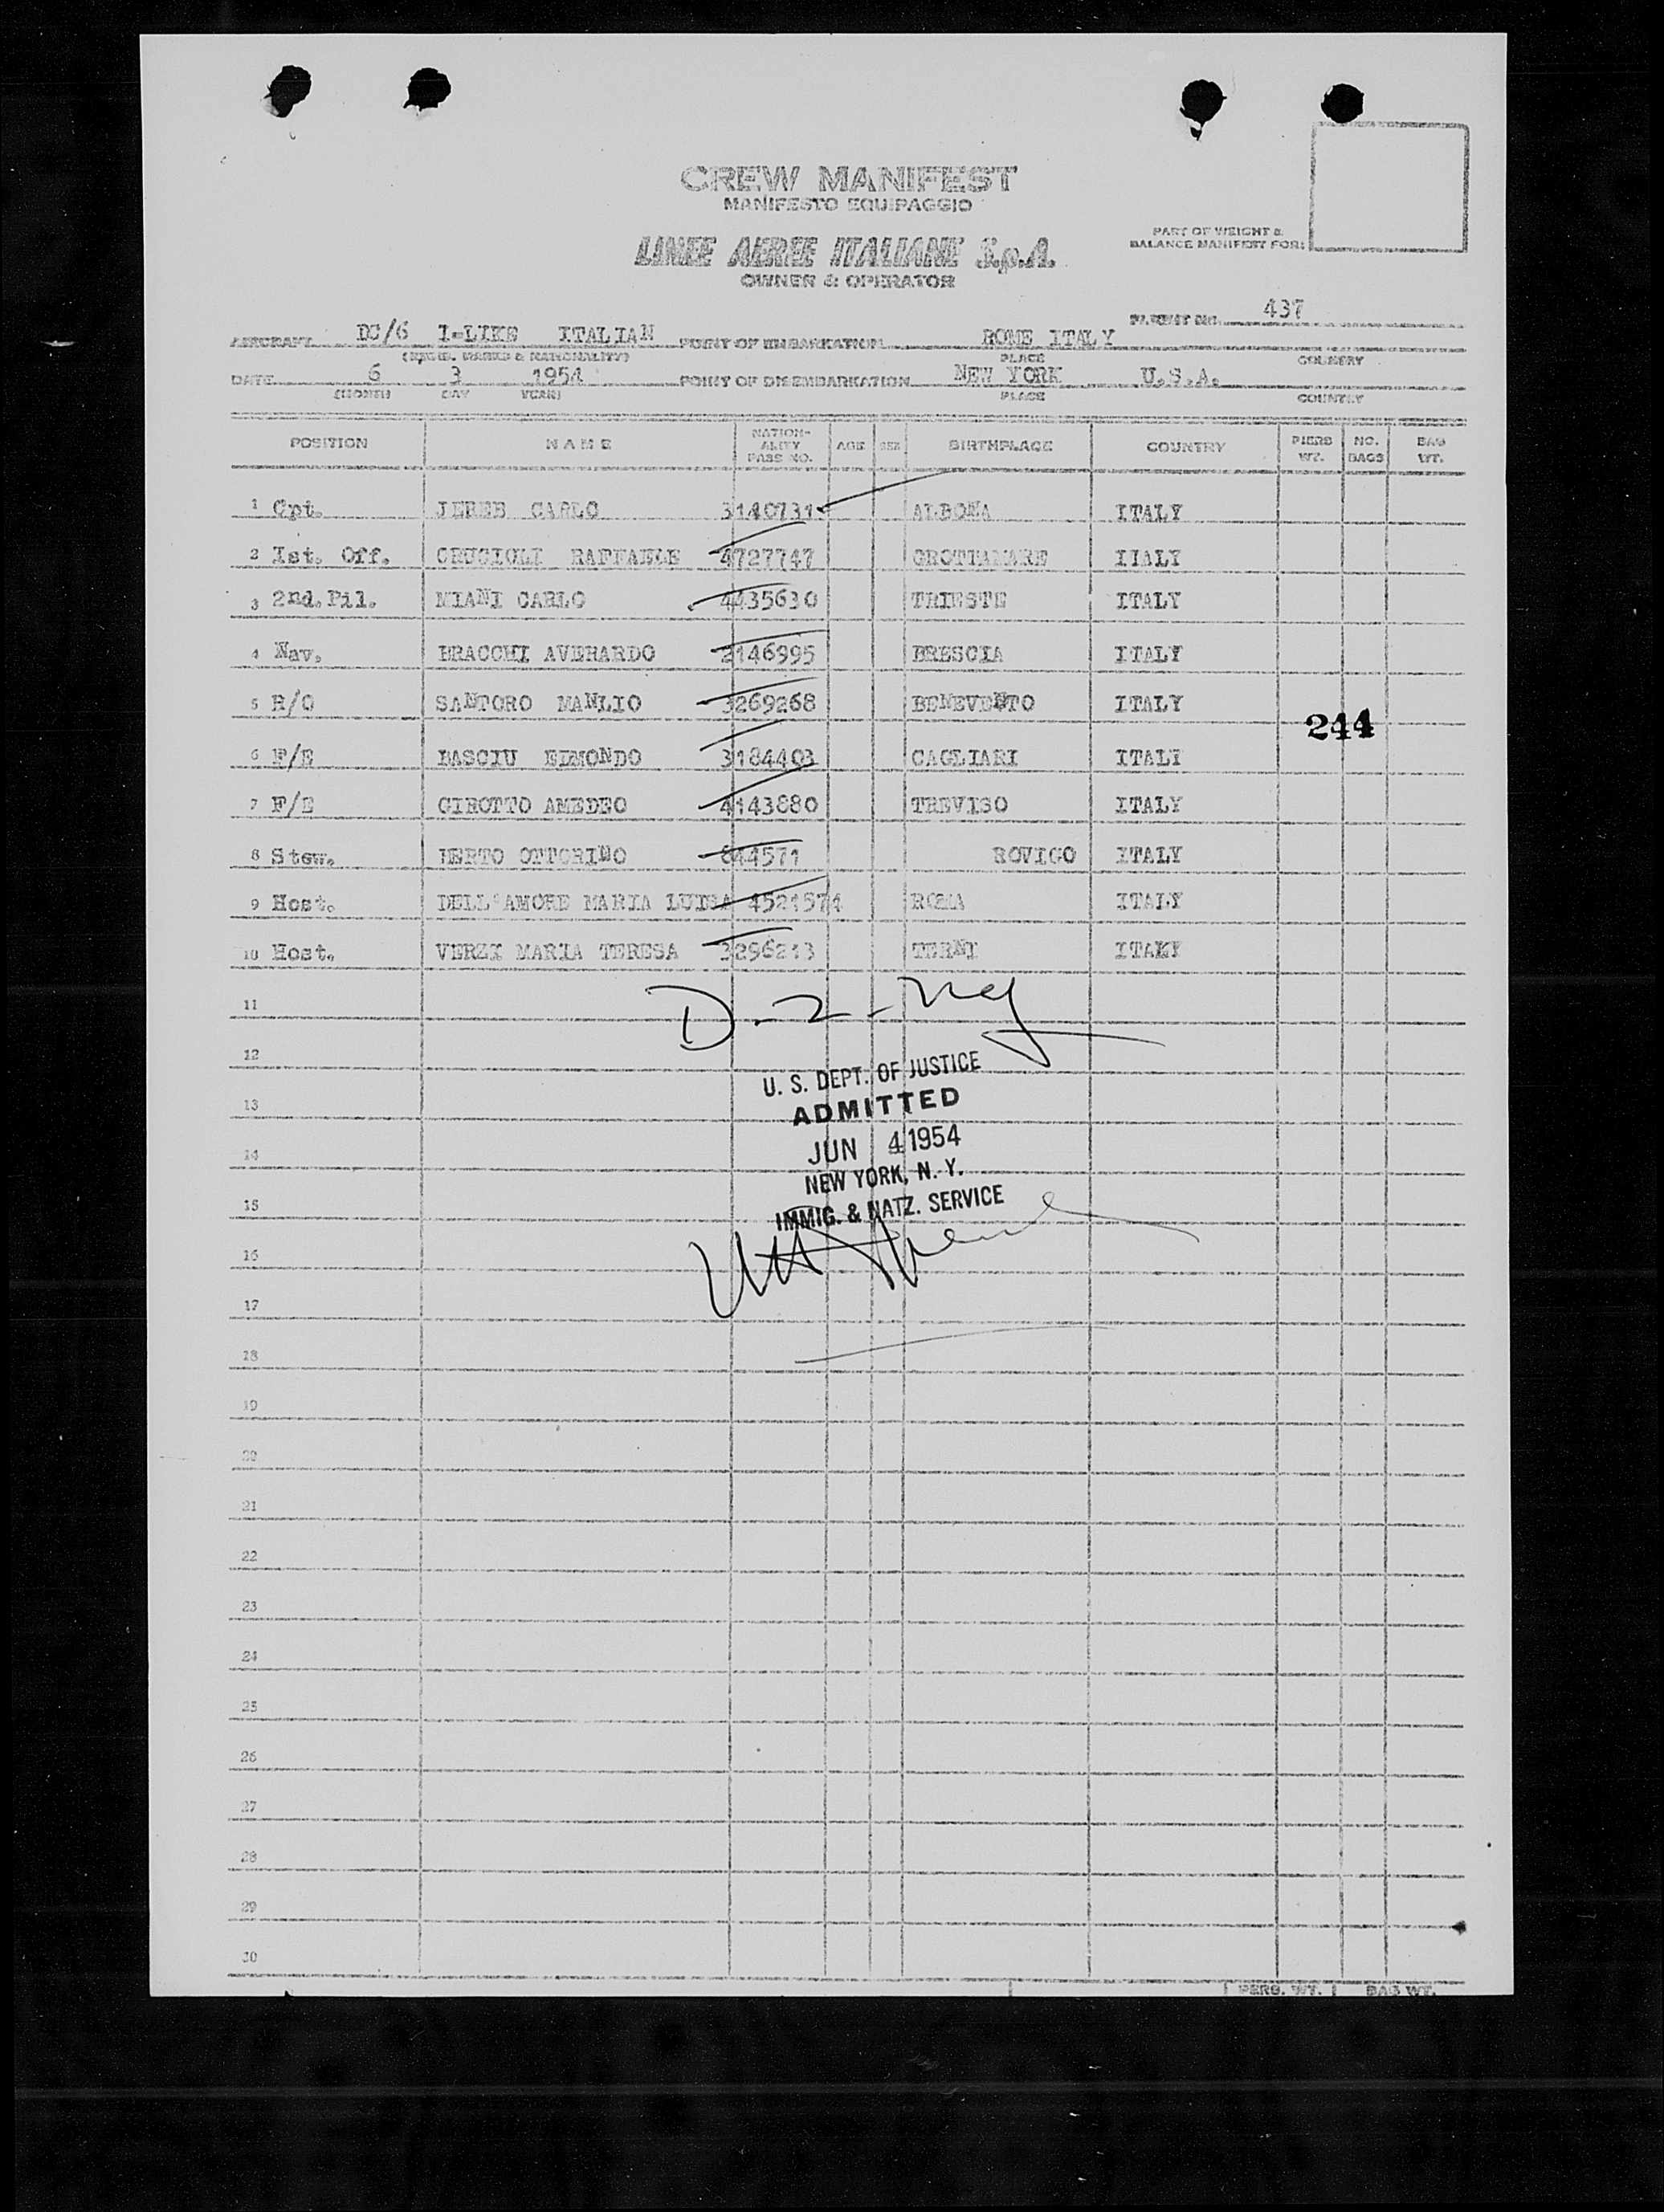 CREW MANIFEST
MANIFESTO EQUIPAGGIO
LINEE AEREE ITALIANE S.p.A.
OWNER & OPERATOR
PART OF WEIGHT &
BALANCE MANIFEST FOR:
FLIGHT NO. 437
AIRCRAFT DC/6 I-LIKE ITALIAN POINT OF EMBARKATION ROME ITALY
(REGIS. MARKS & NATIONALITY) PLACE COUNTRY
DATE 6 3 1954 POINT OF DISEMBARKATION NEW YORK U.S.A.
(MONTH DAY YEAR) PLACE COUNTRY
POSITION NAME NATION-ALITY PASS NO. AGE SEX BIRTHPLACE COUNTRY PERS WT. NO. BAGS BAG WT.
1 Cpt. JEREB CARLO 3140731 ALBONA ITALY
2 Ist. Off. CRUCIOLI RAFFAELE 4727747 GROTTAMARE ITALY
3 2nd. Pil. MIANI CARLO 4435630 TRIESTE ITALY
4 Nav. BRACCHI AVERARDO 2146995 BRESCIA ITALY
5 R/O SANTORO MANLIO 3269268 BENEVENTO ITALY
244
6 F/E EDMONDO 3184403 CAGLIARI ITALY
7 F/E GIROTTO AMEDEO 4143880 TREVISO ITALY
8 Stew. BERTO OTTORINO 844571 ROVIGO ITALY
9 Host. DELL'AMORE MARIA LUISA 4521574 ROMA ITALY
10 Host. VERZI MARIA TERESA 3296213 TERNI ITALY
11
D-2-
12
U. S. DEPT. OF JUSTICE
13
ADMITTED
JUN 4 1954
14
NEW YORK, N. Y.
15
IMMIG. & NATZ. SERVICE
16
17
18
19
20
21
22
23
24
25
26
27
28
29
30
PERS. WT. BAG WT.